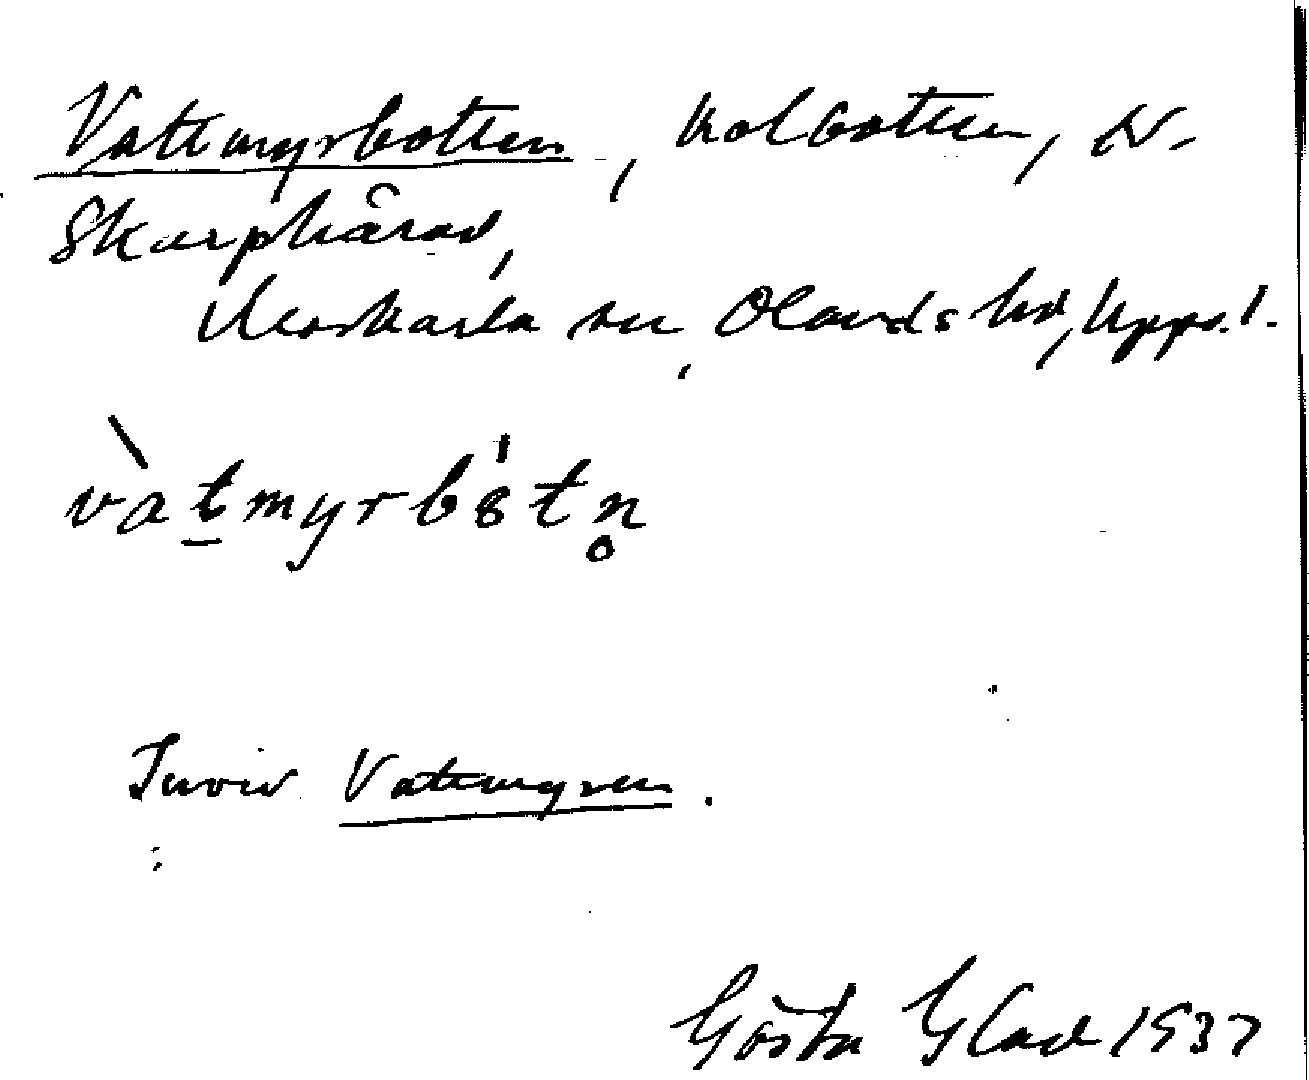 Vattmyrbotten, kolbotten, N.
Skarphårad,
Morkarla sn, Olands hd, Uppl.
vàtmyrbòtn̥
Invid Vattmyren.
Gösta Glad 1937